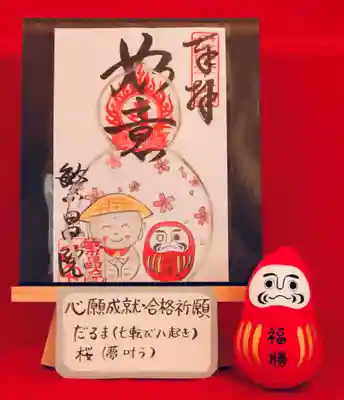 奉拝
如意
繁昌院
心願成就・合格祈願
だるま(七転び八起き)
桜(夢叶う)
福勝